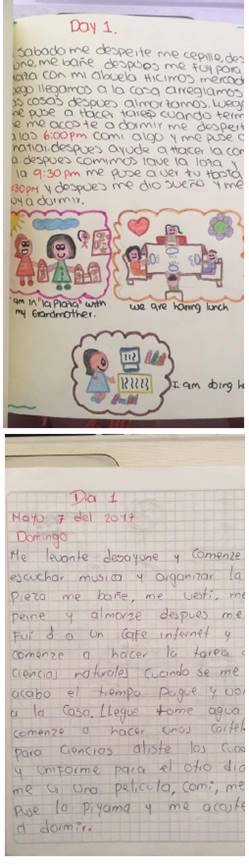 Day 1.
sabado me desperte me cepille, des
une, me bañe despues me fui para
lata con mi abuela Hicimos mercado
ego llegamos a la casa arreglamos
as cosas despues almorzamos. Luego
me puse a Hacer tarea cuando term
e me acoste a dormir me despert
a las 6:00pm comi algo y me puse
hatiar, despues ayude a Hacer la com
a despues comimos lave la loza y
la 9:30 pm me puse a ver tv hasta
:30pm y despues me dio sueño y me
uy a dormir.
am in "la Plaza" with
my Grandmother.
we are having lunch
I am doing h
Dia 1
Mayo 7 del 2017
Domingo
Me levante desayune y comenze
escuchar musica y organizar la
pieza me bañe, me vesti, me
peine y almorze despues me
Fui d a un Cafe internet y
comenze a hacer la tarea
ciencias naturales cuando se me
acabo el tiempo Pague y
a la casa. Llegue tome agua
comenze a hacer unos cartel
para ciencias aliste los
y uniforme para el otro dia
me vi una pelicula, comi, me
puse la piyama y me acoste
a dormir.